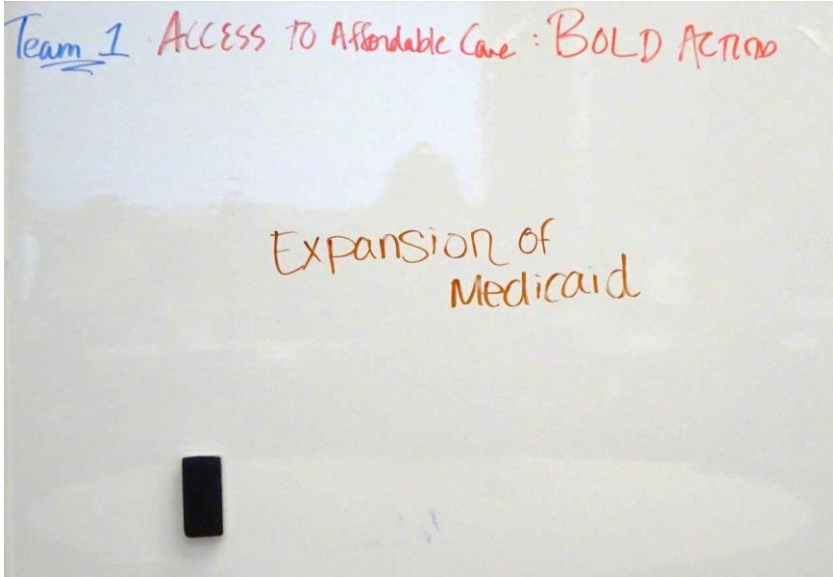 Team 1 ACCESS TO Affordable Care : BOLD ACTION
Expansion of
Medicaid